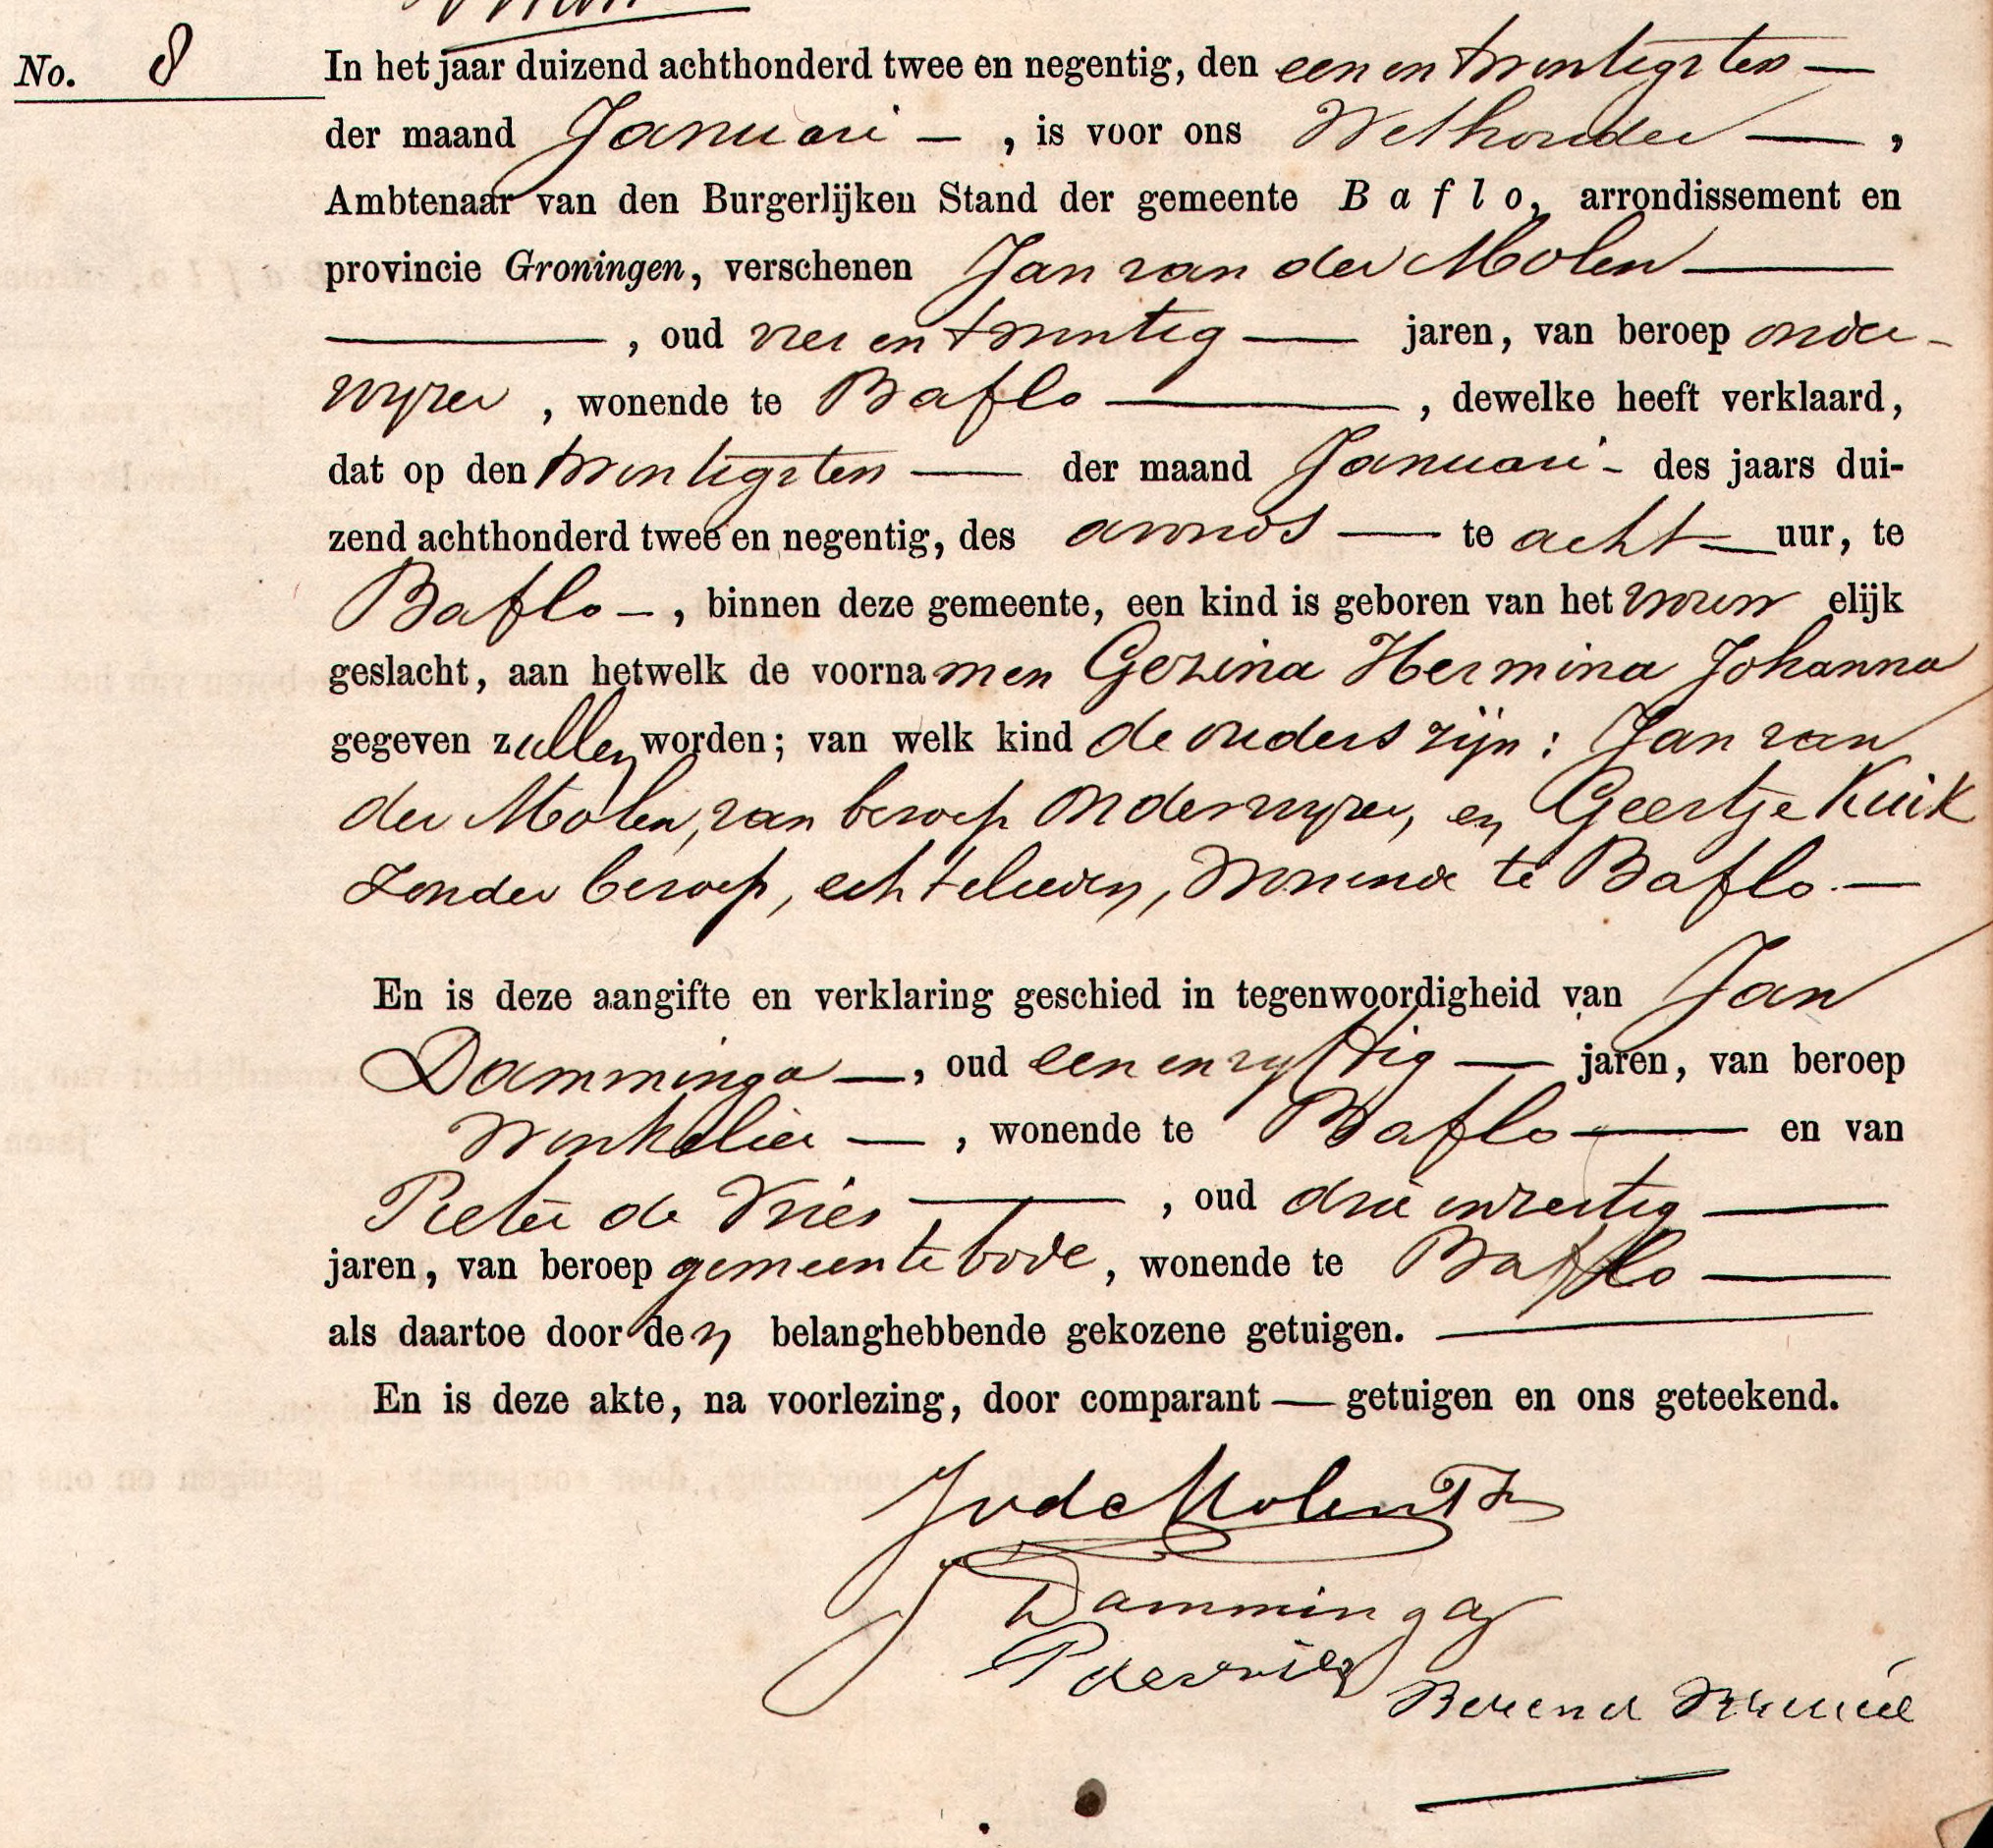 No. 8
In het jaar duizend achthonderd twee en negentig, den een en twintigsten —
der maand Januari — , is voor ons Wethouder — ,
Ambtenaar van den Burgerlijken Stand der gemeente Baflo, arrondissement en
provincie Groningen, verschenen Jan van der Molen —
— , oud vier en twintig — jaren, van beroep onder-
wijzer , wonende te Baflo — , dewelke heeft verklaard,
dat op den twintigsten — der maand Januari - des jaars dui-
zend achthonderd twee en negentig, des avonds — te acht — uur, te
Baflo — , binnen deze gemeente, een kind is geboren van het vrouw elijk
geslacht, aan hetwelk de voornamen Gezina Hermina Johanna
gegeven zullen worden; van welk kind de ouders zijn: Jan van
der Molen, van beroep onderwijzer, en Geertje Kuik
zonder beroep, echtelieden, wonende te Baflo. —
En is deze aangifte en verklaring geschied in tegenwoordigheid van Jan
Damminga — , oud een en vijftig — jaren, van beroep
Winkelier — , wonende te Baflo — en van
Pieter de Vries — , oud drie en veertig —
jaren, van beroep gemeentebode, wonende te Baflo —
als daartoe door den belanghebbende gekozene getuigen. —
En is deze akte, na voorlezing, door comparant — getuigen en ons geteekend.
JvdMolen
J Damminga
P de Vries
Berend